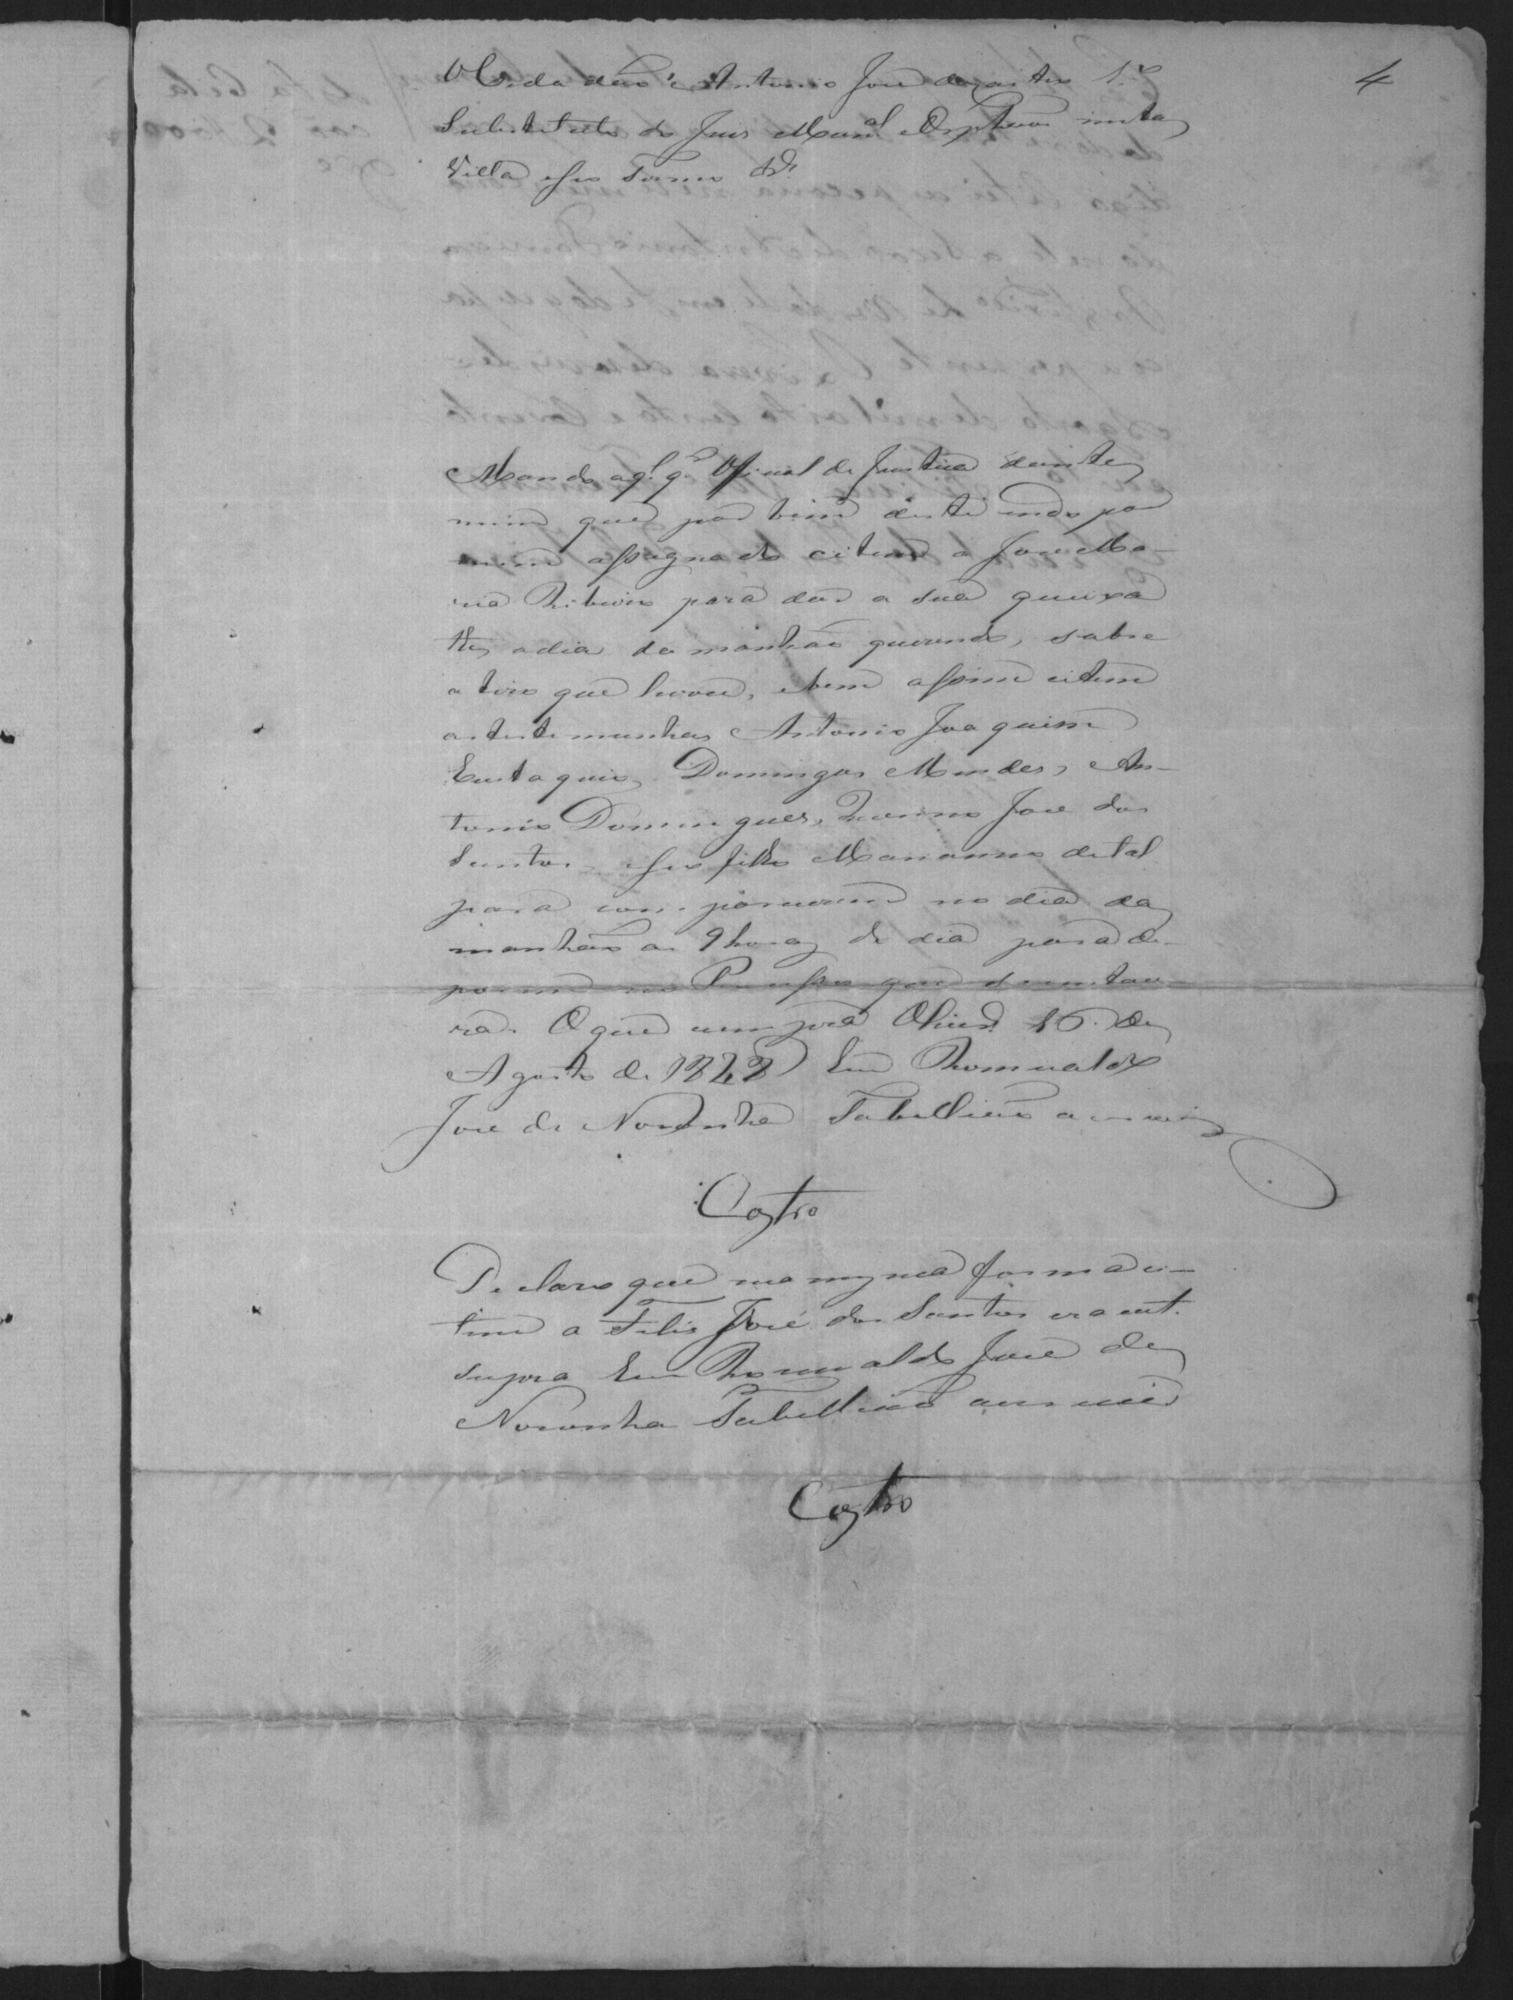 4
O Cidadão Antonio José de Castro 1.º
Substituto do Juis Mun.al Orphaos nesta
Villa e seo Termo &.ª
Mando a q.l q.r Official de Justiça deste
mim que por bem deste indo por
mim assignado citem a José Ma-
ria Ribeiro para dar a sua queixa
the odia da manhão querendo, sobre
o tiro que levou, e bem assim citem
as testemunhas Antonio Joaquim
Eustaquio, Domingos Mendes, An-
tonio Domingues, José dos
Santos e seo filho Marianno de tal
para comparecerem no dia da
manhão as 9 horas do dia para de-
porem no Processo que se instau-
ra. O que cumpra 16 de
Agosto de 1848 Eu Romualdo
José de Noronha Tabellião a escrevi
Castro
Declaro que na mesma forma ci-
tem a Felis José dos Santos era ut
supra Eu Romualdo José de
Noronha Tabellião escrevi
Castro